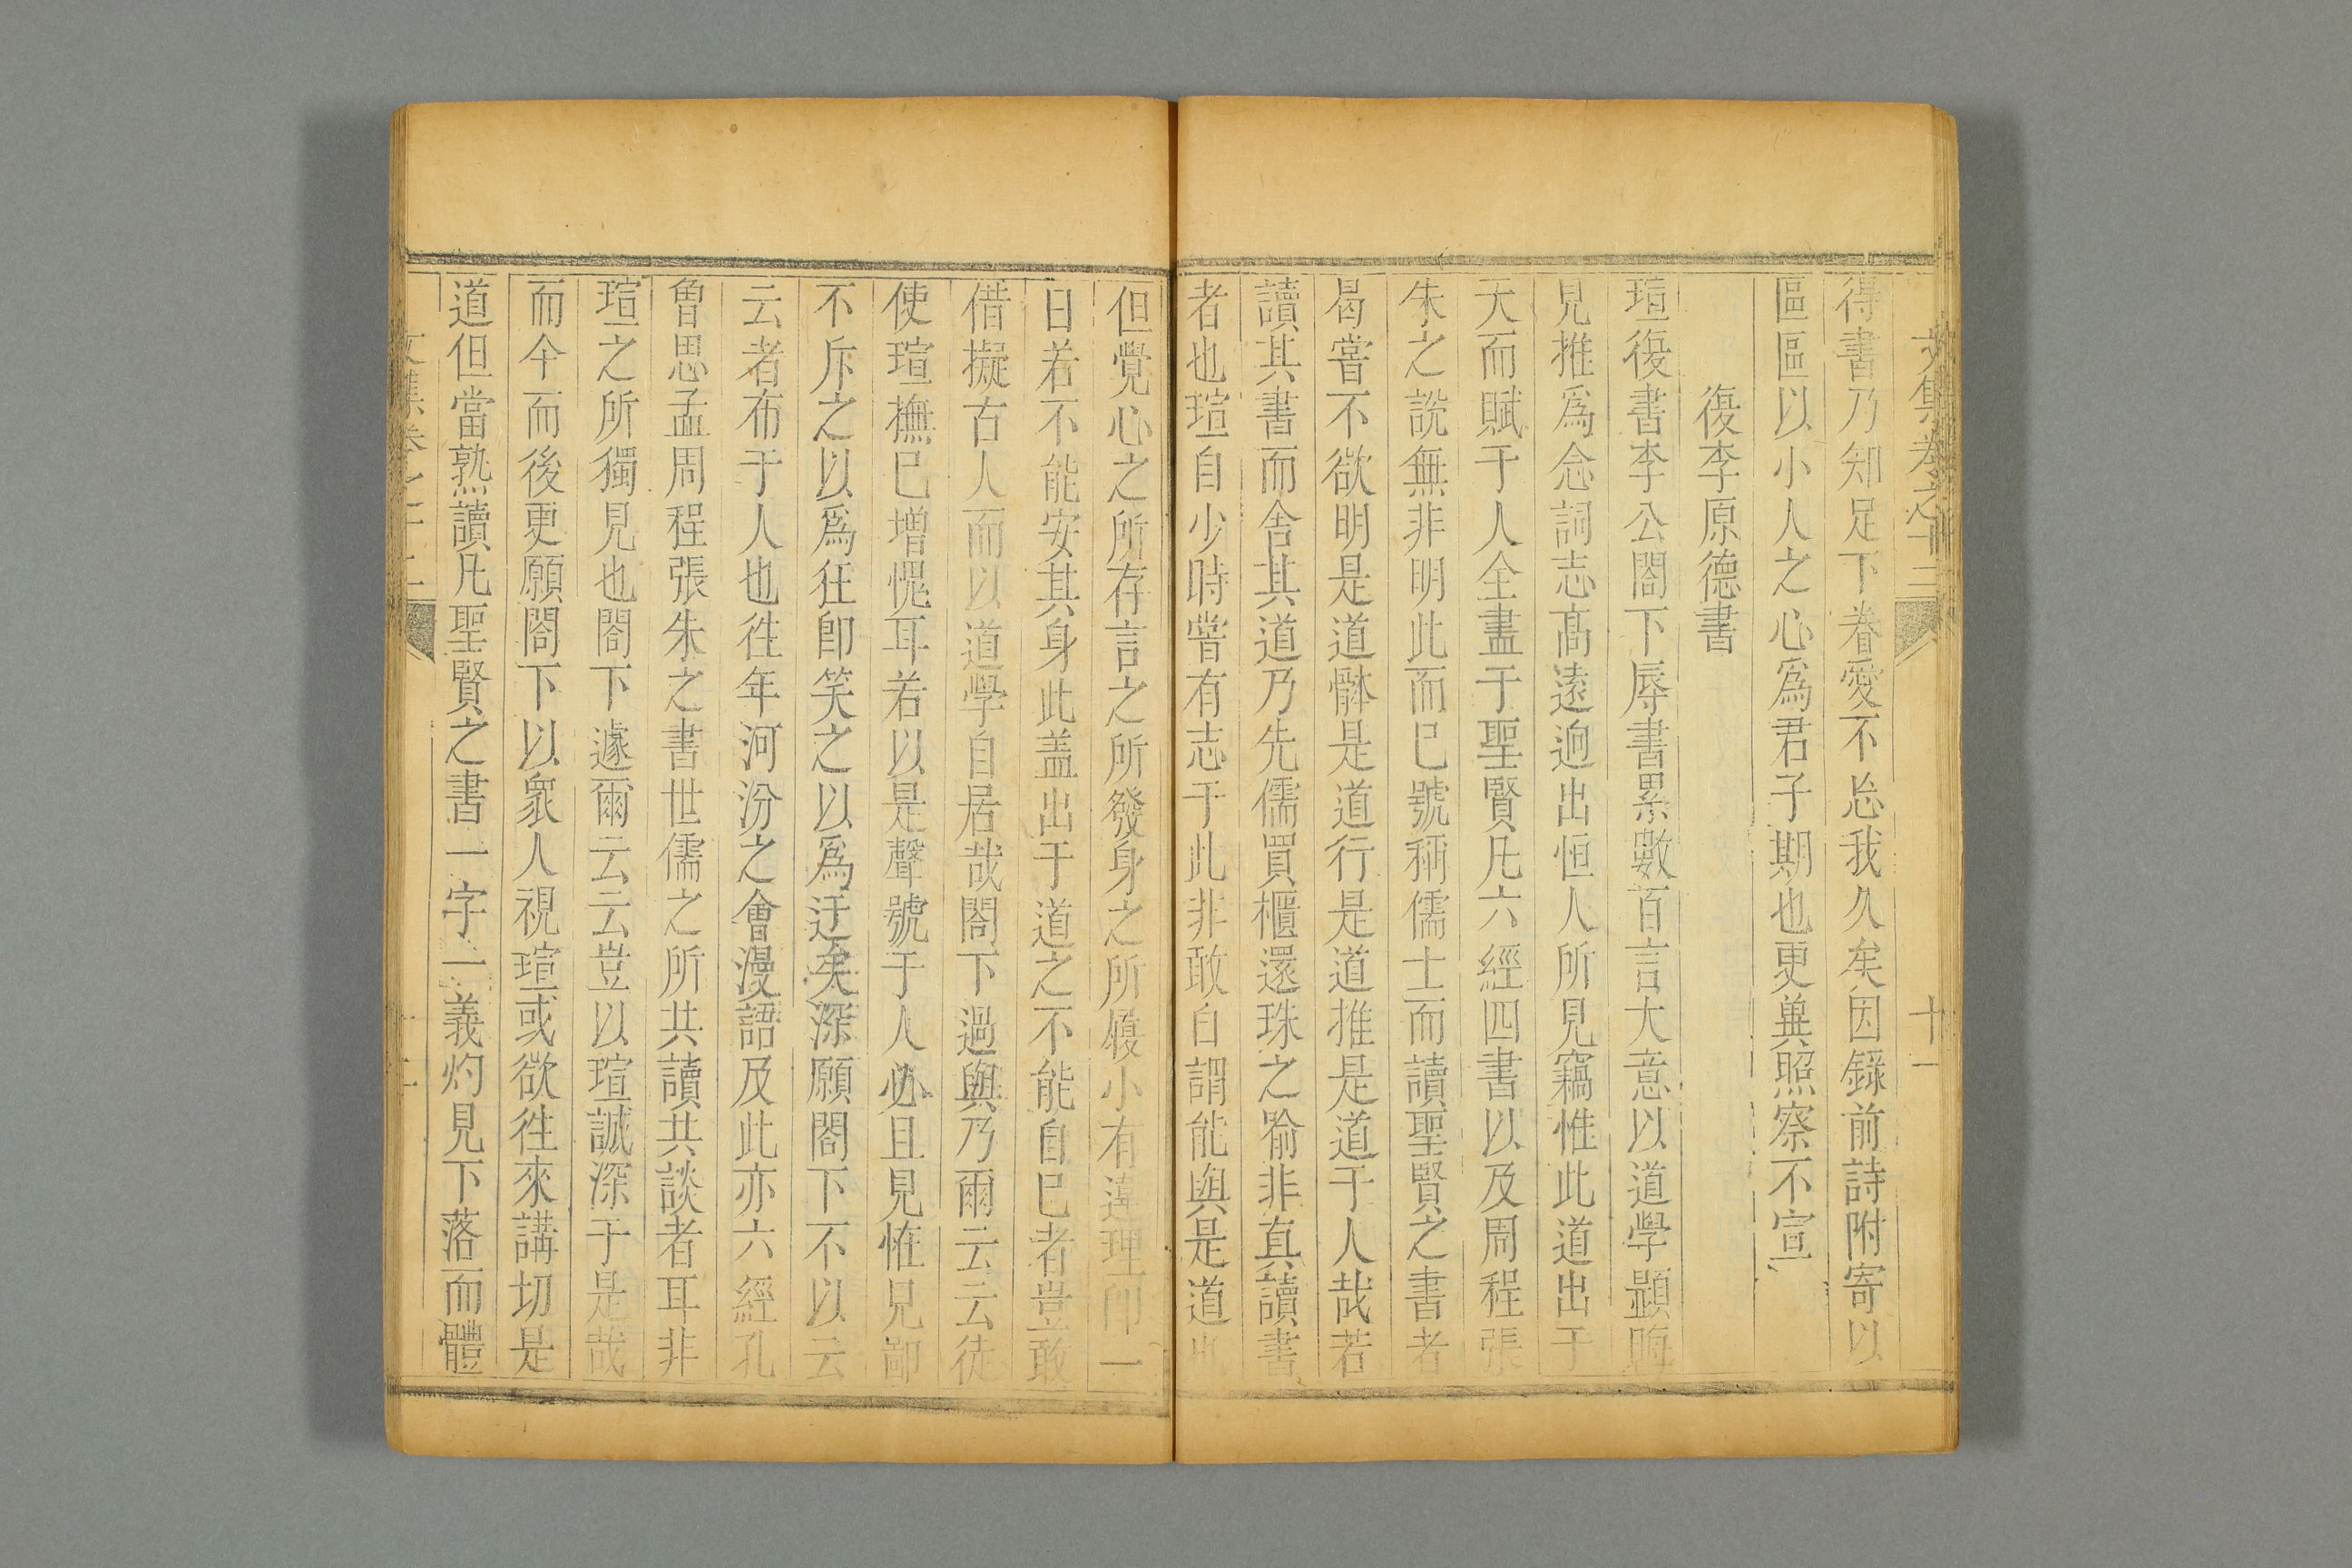 文集卷之十二 十一
得書乃知足下眷愛不忘我久矣因錄前詩附寄以
區區以小人之心爲君子期也更兾照察不宣
復李原德書
瑄復書李公閤下辱書累數百言大意以道學顯晦
見推爲念詞志髙遠逈出恒人所見竊惟此道出于
天而賦于人全盡于聖賢凡六經四書以及周程張
朱之說無非明此而已號稱儒士而讀聖賢之書者
曷嘗不欲明是道體是道行是道推是道于人哉若
讀其書而舍其道乃先儒買櫃還珠之喻非真讀書
者也瑄自少時嘗有志于此非敢自謂能與是道也
但覺心之所存言之所發身之所履小有違理即一
日若不能安其身此盖出于道之不能自已者豈敢
借擬古人而以道學自居哉閤下過與乃爾云云徒
使瑄撫已增愧耳若以是聲號于人必且見恠見鄙
不斥之以爲狂卽笑之以爲迂矣深願閤下不以云
云者布于人也徃年河汾之會漫語及此亦六經孔
曾思孟周程張朱之書世儒之所共讀共談者耳非
瑄之所獨見也閤下遽爾云云豈以瑄誠深于是哉
而今而後更願閤下以衆人視瑄或欲徃來講切是
道但當熟讀凡聖賢之書一字一義灼見下落而體
文集卷之十二 十二